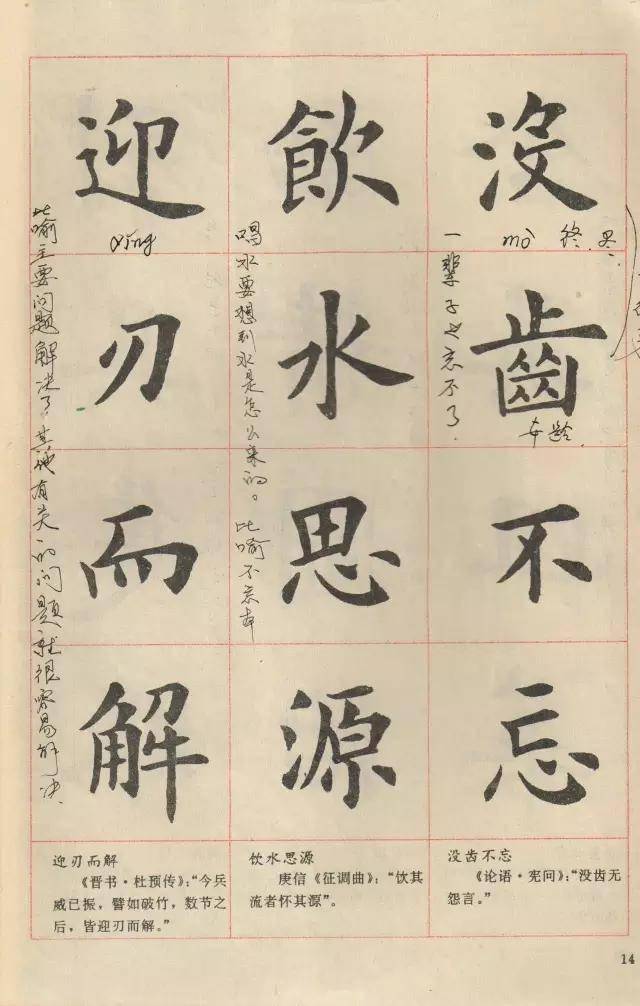 没
齒
不
忘
飲
水
思
源
迎
刃
而
解
mò 终
年龄
一辈子也忘不了.
喝水要想到水是怎么来的。比喻不忘本
yíng
比喻主要问题解决了,其他有关的问题就很容易解决
没齿不忘
《论语·宪问》:“没齿无
怨言。”
饮水思源
庾信《征调曲》:“饮其
流者怀其源”。
迎刃而解
《晋书·杜预传》:“今兵
威已振,譬如破竹,数节之
后,皆迎刃而解。”
14